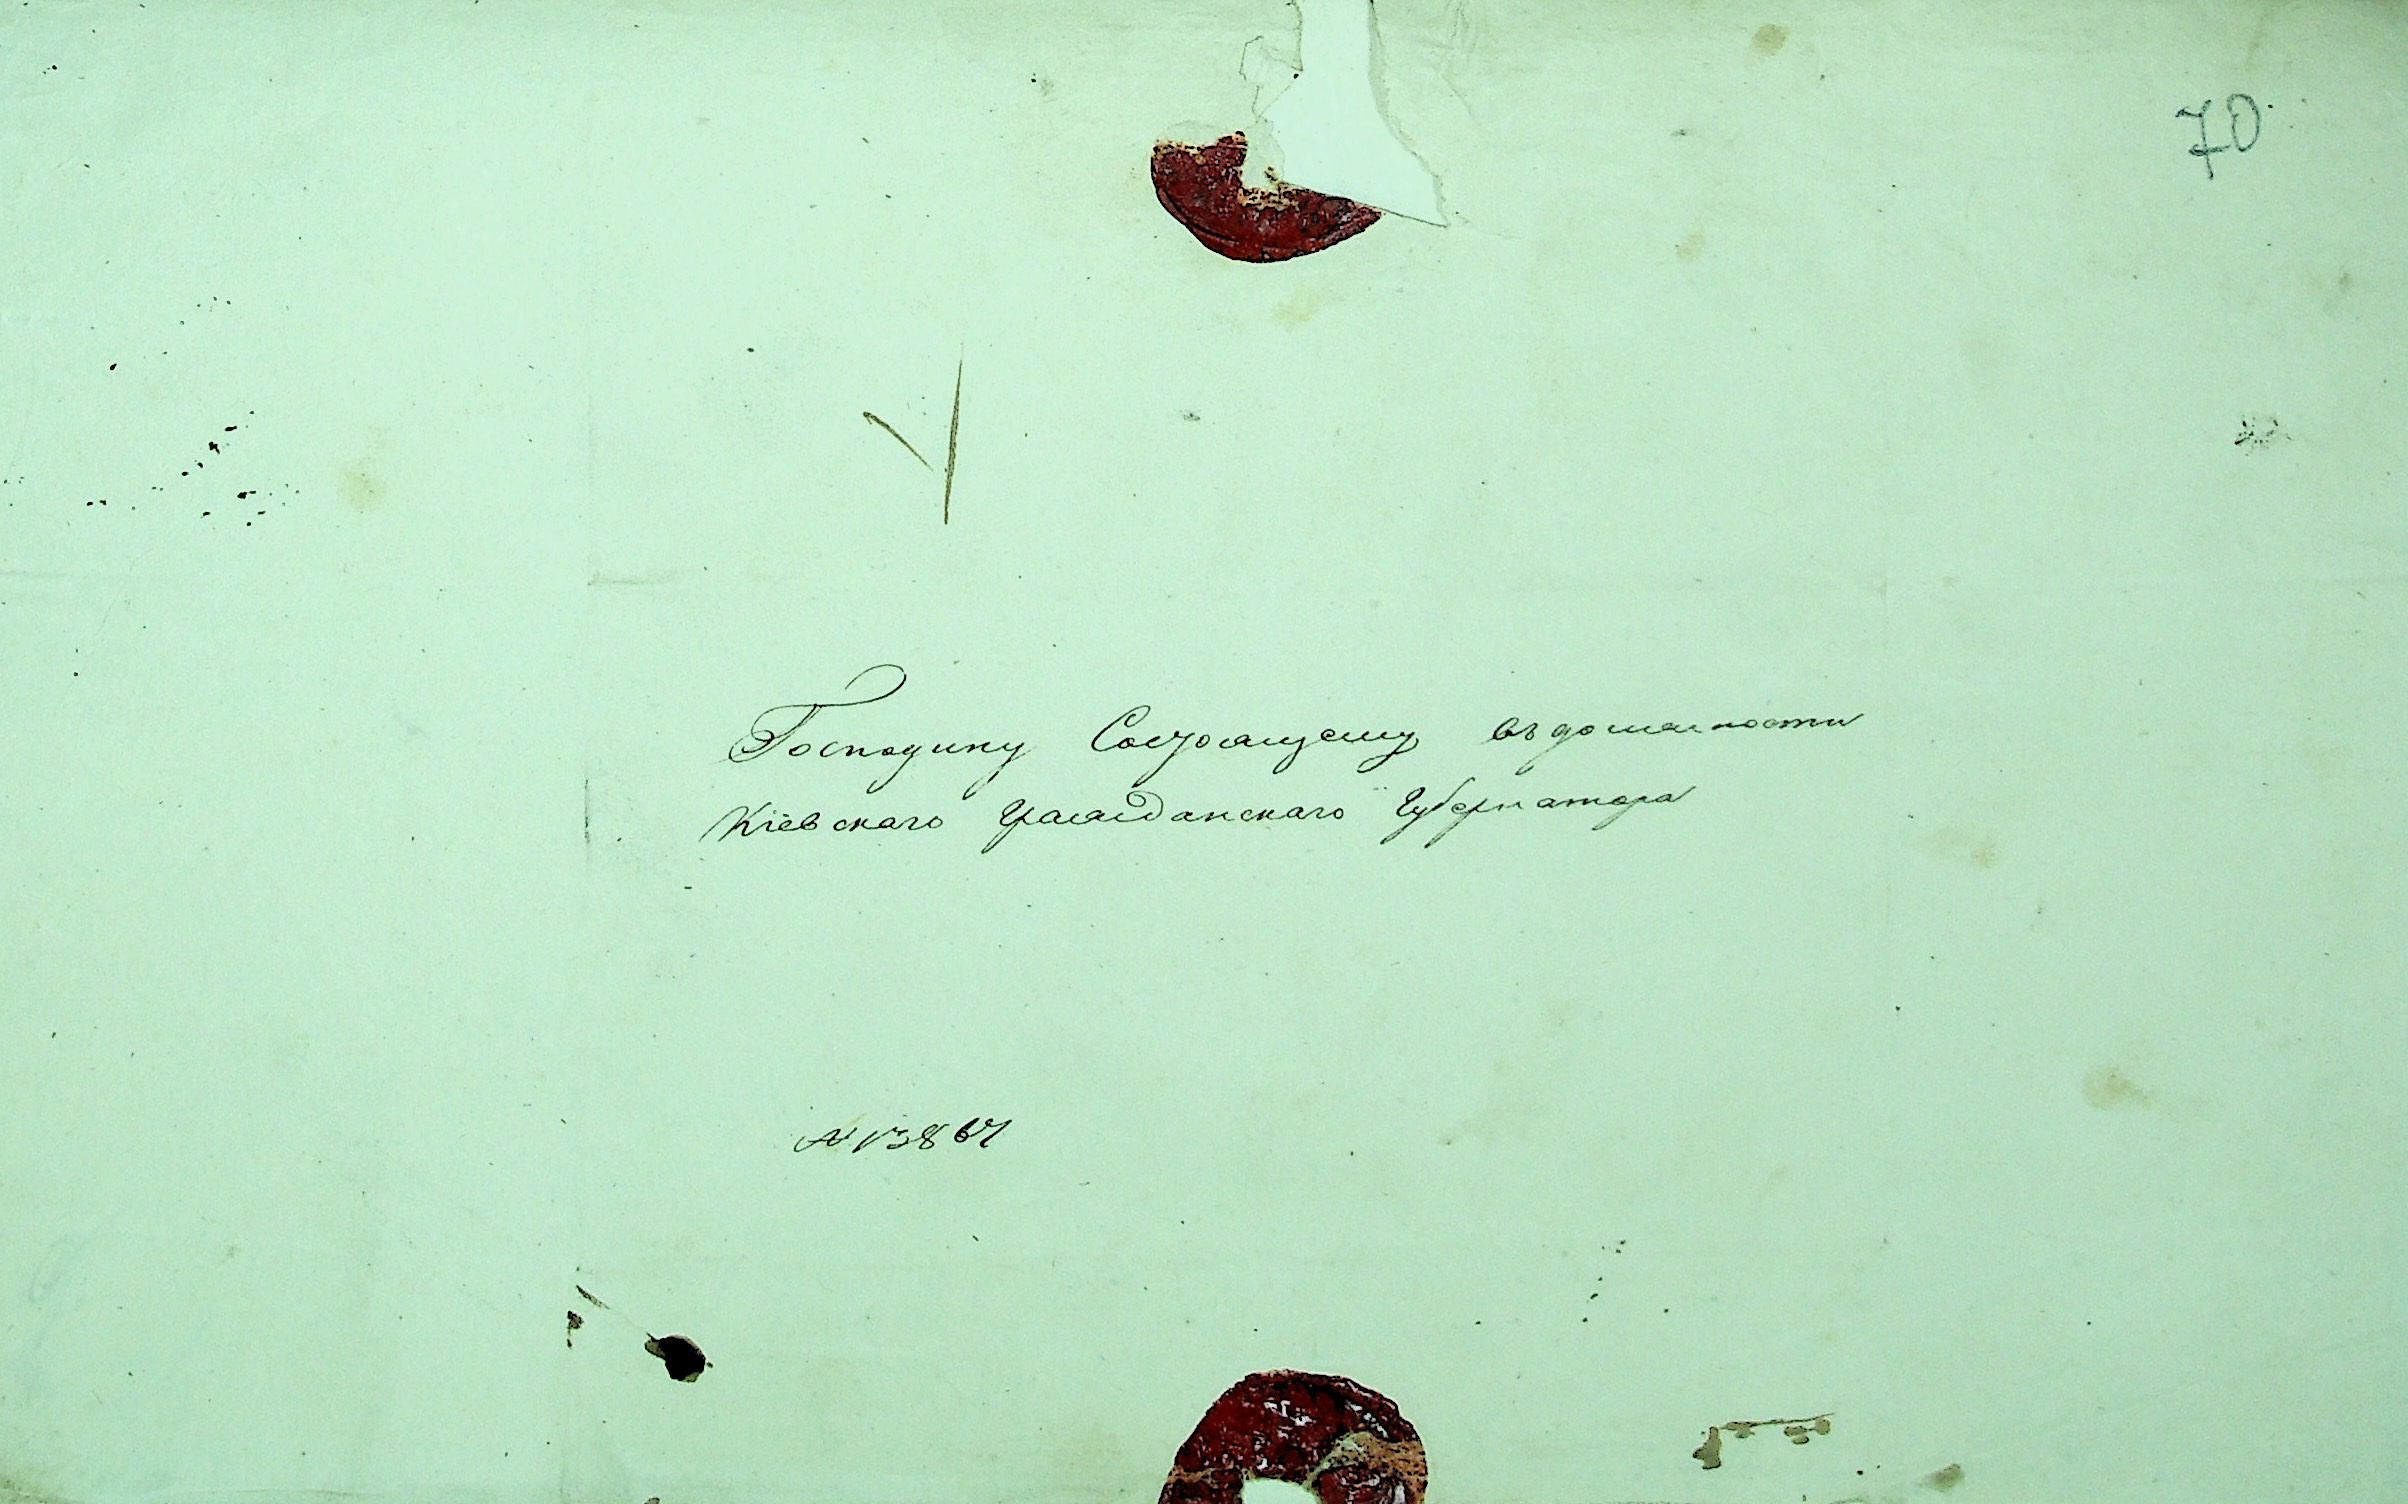 70
Господину Состоящему въ должности
Кіевскаго Гражданскаго Губернатора
№ 13867